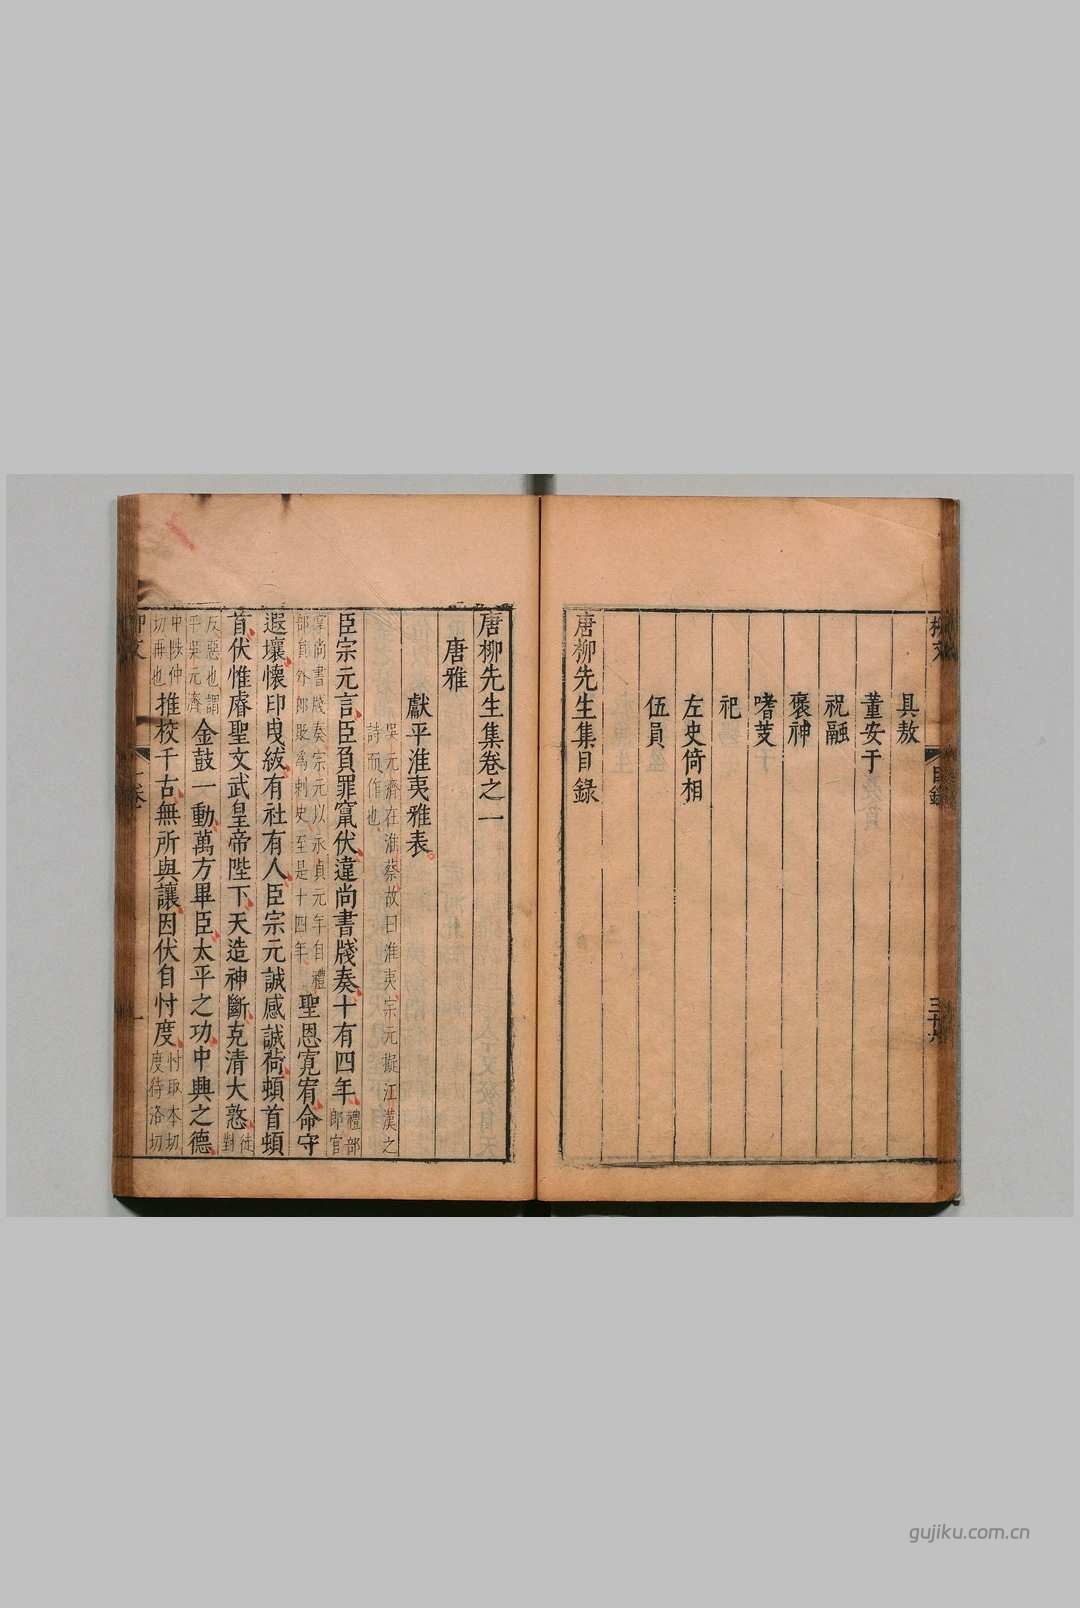 具敖
董安于
祝融
褒神
嗜芰
祀
左史倚相
伍員
唐柳先生集目錄
目錄
唐柳先生集卷之一
唐雅
獻平淮夷雅表
吳元濟在淮蔡故曰淮夷宗元擬江漢之
詩而作也
臣宗元言臣負罪竄伏違尚書牋奏十有四年
禮部
郎官
掌尚書牋奏宗元以永貞元年自禮
部員外郎貶爲刺史至是十四年
聖恩寛宥命守
遐壤懷印曵紱有社有人臣宗元誠感誠荷頓首頓
首伏惟睿聖文武皇帝陛下天造神斷克清大憝
徒
對
反惡也謂
平吳元濟
金鼓一動萬方畢臣太平之功中興之德
推校千古無所與讓因伏自忖度
忖取本切
度待洛切
中陟仲
切再也
柳文
一卷
一
gujiku.com.cn